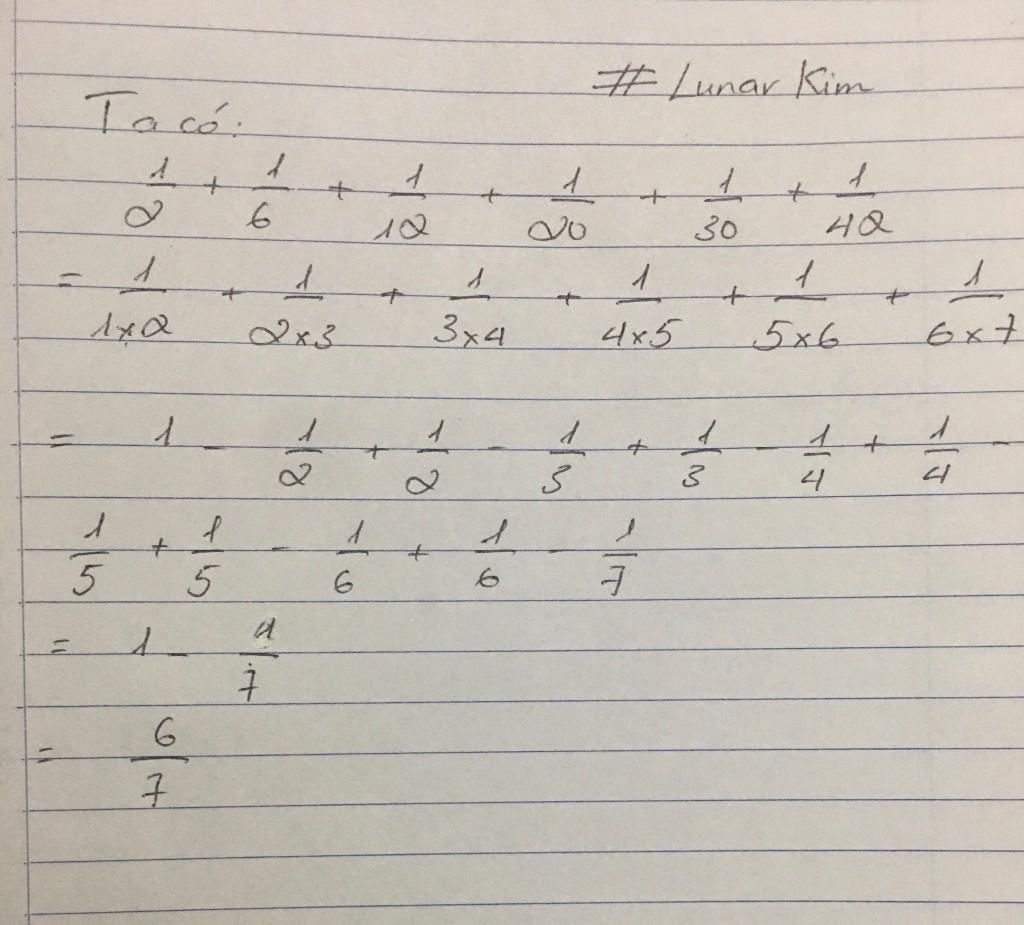 # Lunar Kim
Ta có:
1/2 + 1/6 + 1/12 + 1/20 + 1/30 + 1/42
= 1/1×2 + 1/2×3 + 1/3×4 + 1/4×5 + 1/5×6 + 1/6×7
= 1 - 1/2 + 1/2 - 1/3 + 1/3 - 1/4 + 1/4 -
1/5 + 1/5 - 1/6 + 1/6 - 1/7
= 1 - 1/7
= 6/7